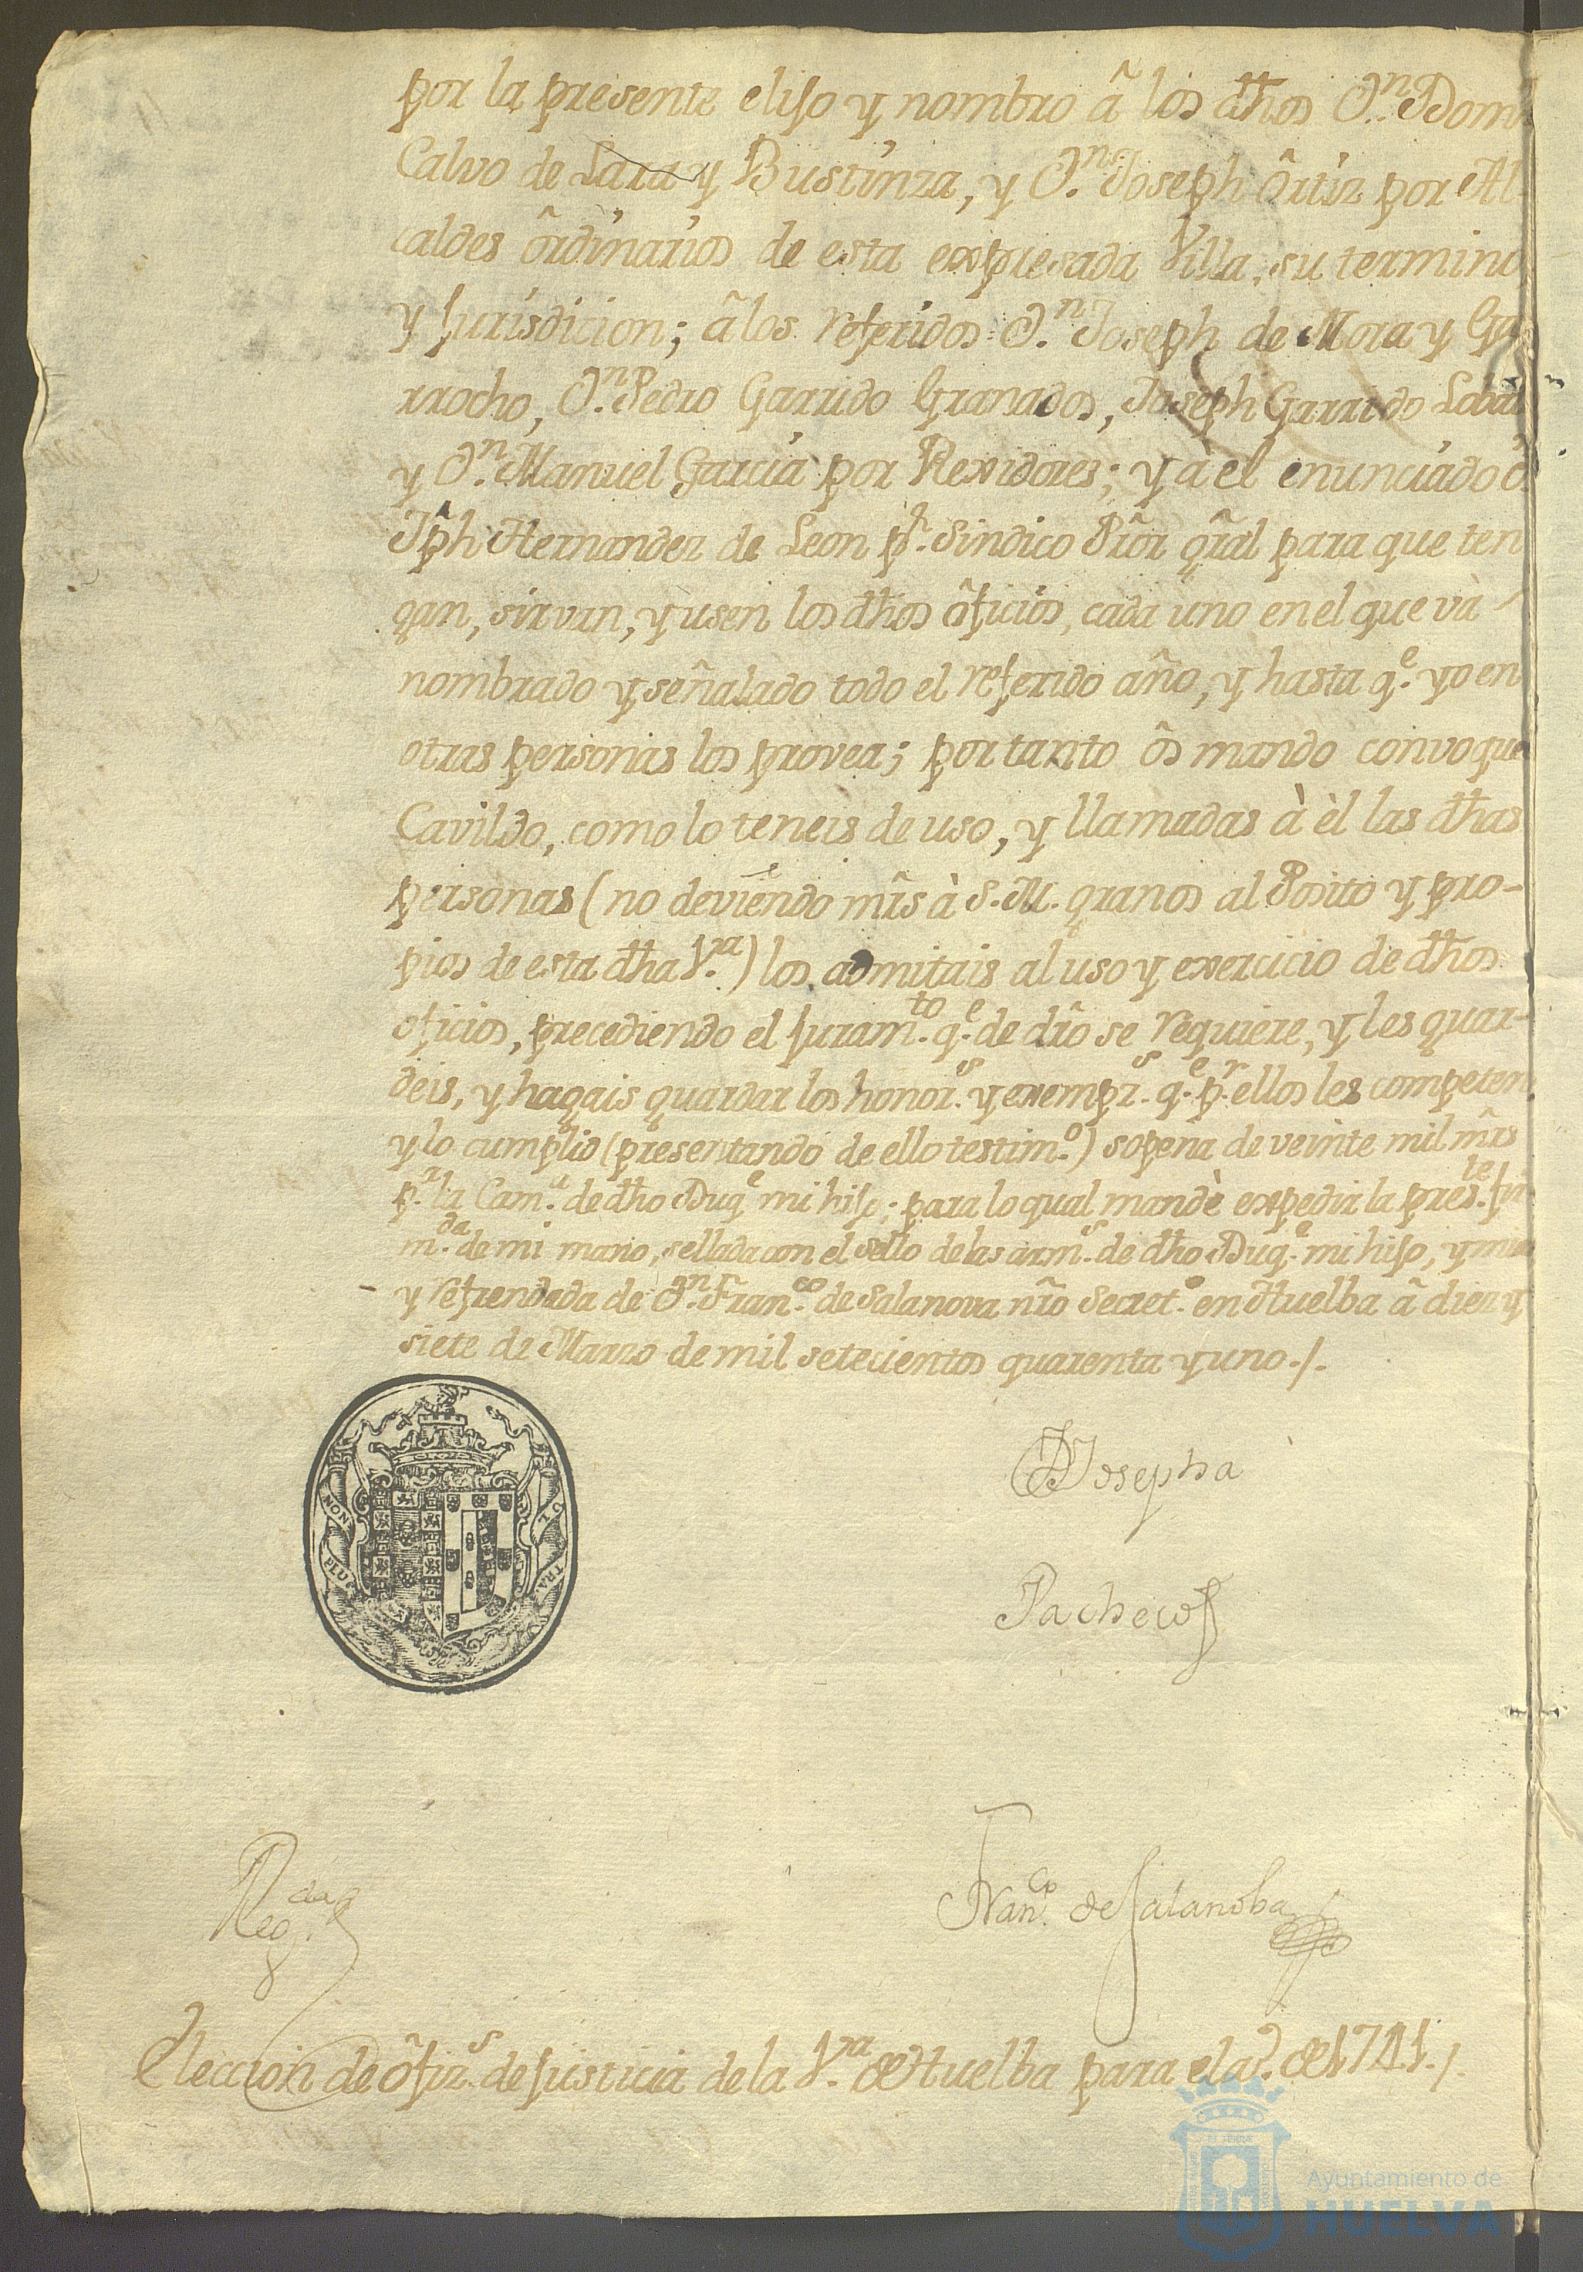 por la presente elijo y nombro â los dhos Dn. Dom
Calvo de Lara y Bustinza, y Dn. Joseph Ôrtiz por Al
caldes ôrdinarios de esta expresada Villa, su termino
y Jurisdicion; â los referidos Dn. Joseph de Mora y Ga
rrocho, Dn. Pedro Garrido Granados, Joseph Garrido
y Dn. Manuel Garcia por Rexidores; y à el enunciado
Jph Hernandez de Leon pr. Sindico Prôr grâl para que ten
gan, sirvan, y usen los dhos ôficios, cada uno en el que và
nombrado y señalado todo el referido año, y hasta qe. yo en
otras personas los provea; por tanto ôs mando convoque
Cavildo, como lo teneis de uso, y llamadas à èl las dhas
personas (no deviendo mrs à S. M. granos al Posito y pro-
pios de esta dha Va.) los admitais al uso y exercicio de dhos
oficios, precediendo el Juramto. qe. de dro se requiere, y les guar-
deis, y hagais guardar los honors. y exempzs. qe. pr. ellos les competen,
y lo cumplid (presentando de ello testimo.) sopena de veinte mil mrs
pa. la Cama. de dho Duqe mi hijo; para lo qual mandè expedir la preste. fir
mda. de mi mano, sellada con el sello de las arms. de dho Duqe. mi hijo, y mias
y refrendada de Dn. Franco. de Salanova nro Secreto. en Huelba â diez y
siete de Marzo de mil setecientos quarenta y uno./.
NON PLUS ULTRA
Josepha
Pacheco
Regda.
Franco. de Salanoba
Eleccion de ôfizs. de Justicia de la Va. de Huelba para el ao. de 1741./.
Ayuntamiento de
HUELVA